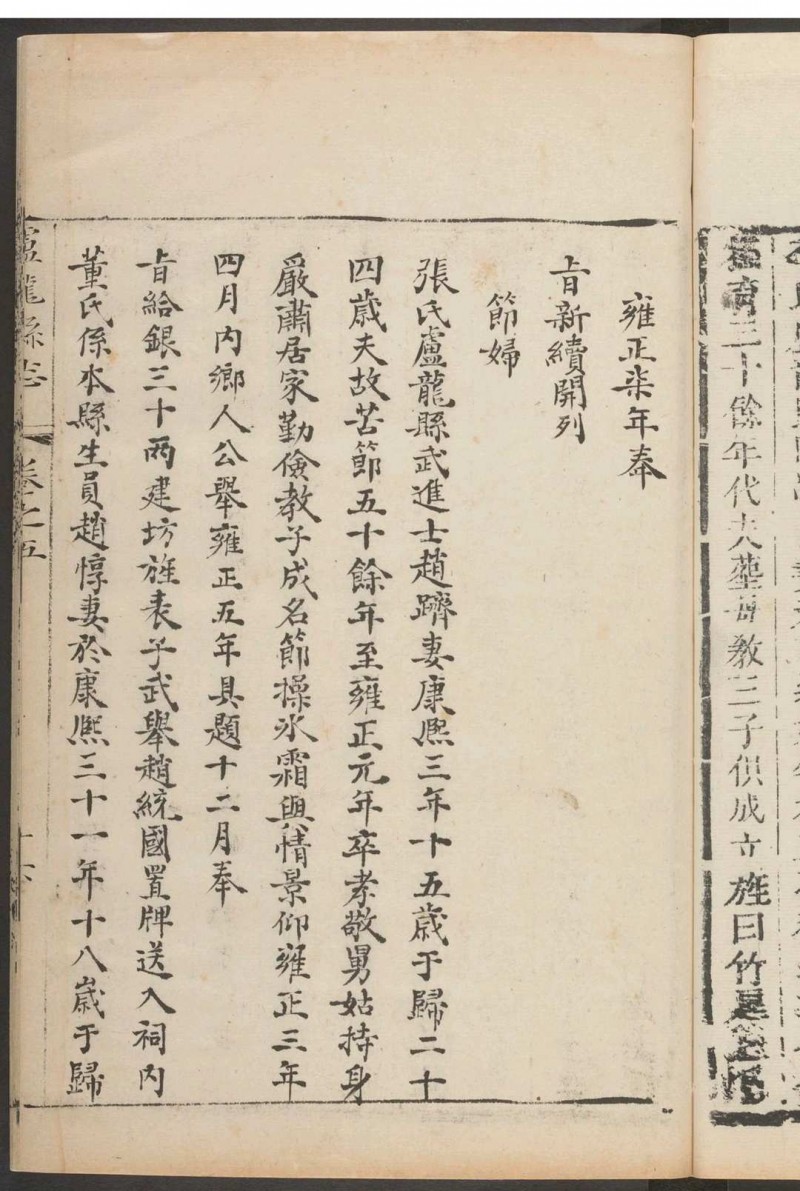 㫖三十餘年代夫塟母教三子俱成立旌曰竹
雍正柒年奉
㫖新續開列
節婦
張氏盧龍縣武進士趙躋妻康熈三年十五歲于歸二十
四歲夫故苦節五十餘年至雍正元年卒孝敬舅姑持身
嚴肅居家勤儉教子成名節操氷霜輿情景仰雍正三年
四月內鄉人公舉雍正五年具題十二月奉
㫖給銀三十兩建坊旌表子武舉趙統國置牌送入祠內
董氏係本縣生員趙惇妻於康熈三十一年十八歲于歸
盧龍縣志 卷之五